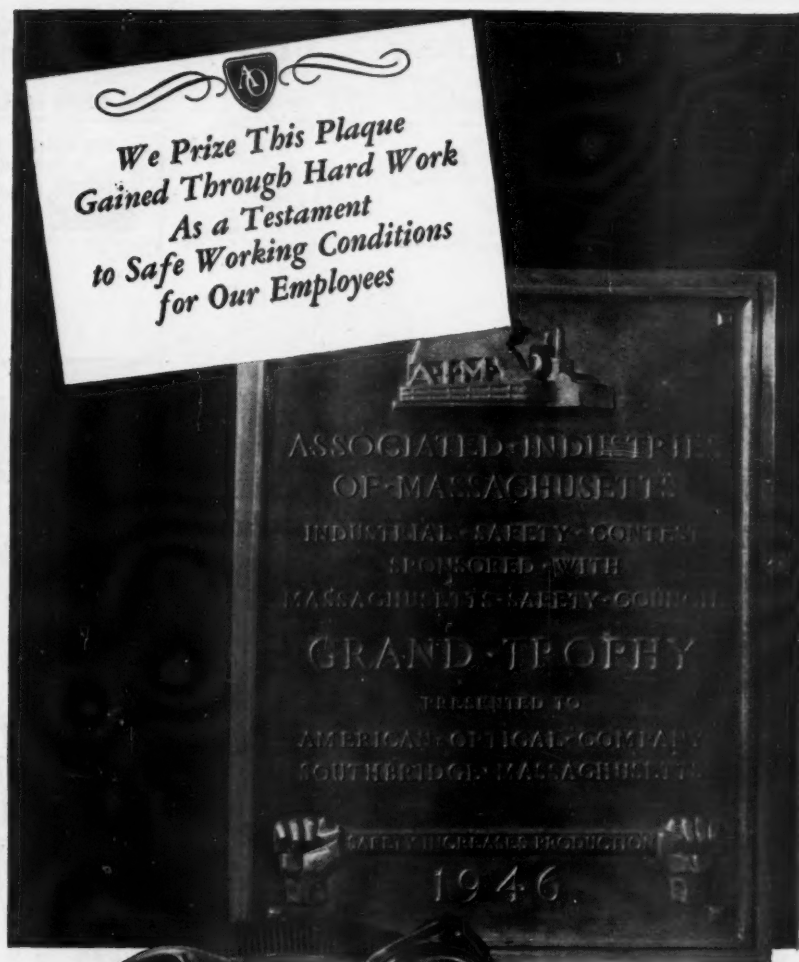 AO
We Prize This Plaque
Gained Through Hard Work
As a Testament
to Safe Working Conditions
for Our Employees
A·I·M
ASSOCIATED·INDUSTRIES
OF·MASSACHUSETTS
INDUSTRIAL·SAFETY·CONTEST
SPONSORED·WITH
MASSACHUSETTS·SAFETY·COUNCIL
GRAND·TROPHY
PRESENTED TO
AMERICAN·OPTICAL·COMPANY
SOUTHBRIDGE·MASSACHUSETTS
SAFETY INCREASES PRODUCTION
1946